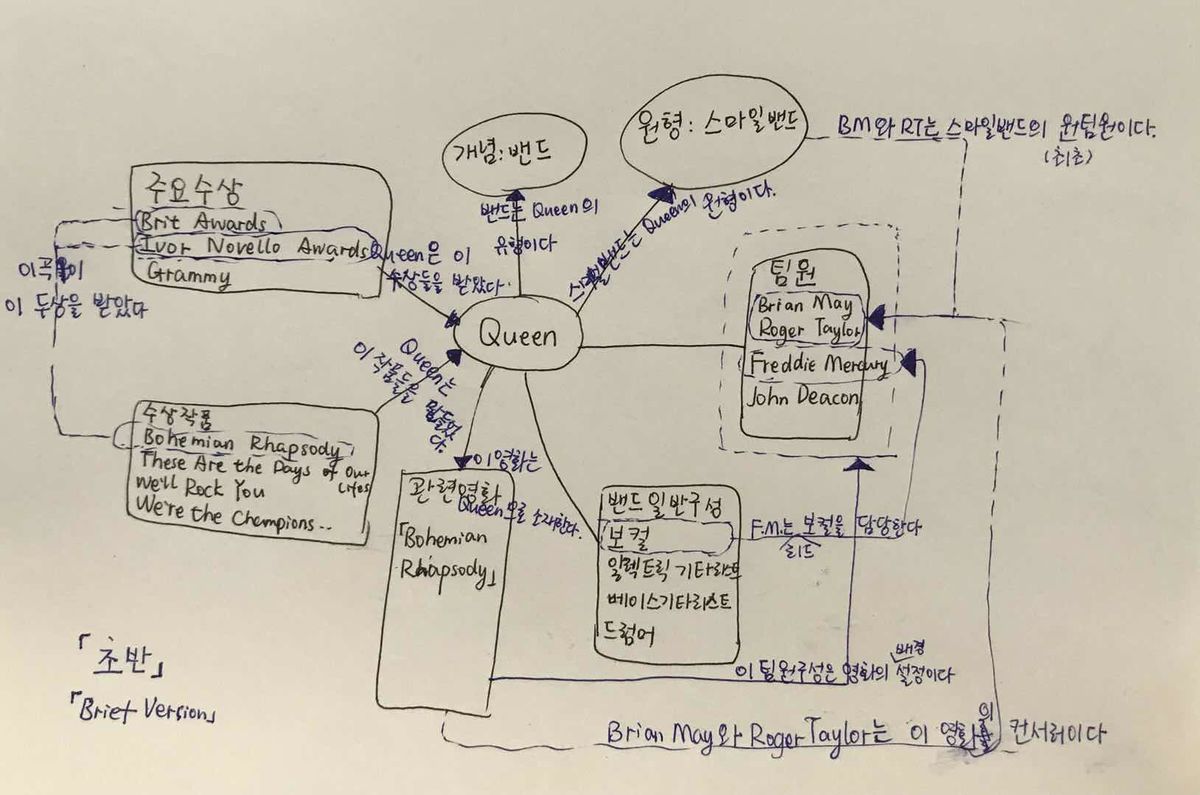 개념:밴드
원형:스마일밴드
BM와 RT는 스마일밴드의 원팀원이다.
(최초)
주요수상
Brit Awards
Ivor Novello Awards
Grammy
밴드는 Queen의
유형이다
Queen의 원형이다.
Queen은 이
수상들을 받았다.
이
이 두상을 받았다
Queen
팀원
Brian May
Roger Taylor
Freddie Mercury
John Deacon
Queen는
이 작품들을 만들었
다.
수상작품
Bohemian Rhapsody
These Are the Days of Our
Lifes
We'll Rock You
We're the Champions..
이영화는
Queen 소재한다.
관련영화
「Bohemian
Rhapsody」
밴드일반구성
보컬
일렉트릭 기타리스트
베이스기타리스트
드럼어
F.M.는 보컬을 담당한다
리드
이 팀원구성은 영화의 설정이다
배경
「초반」
「Brief Version」
Brian May와 Roger Taylor는 이 영화의 컨서러이다